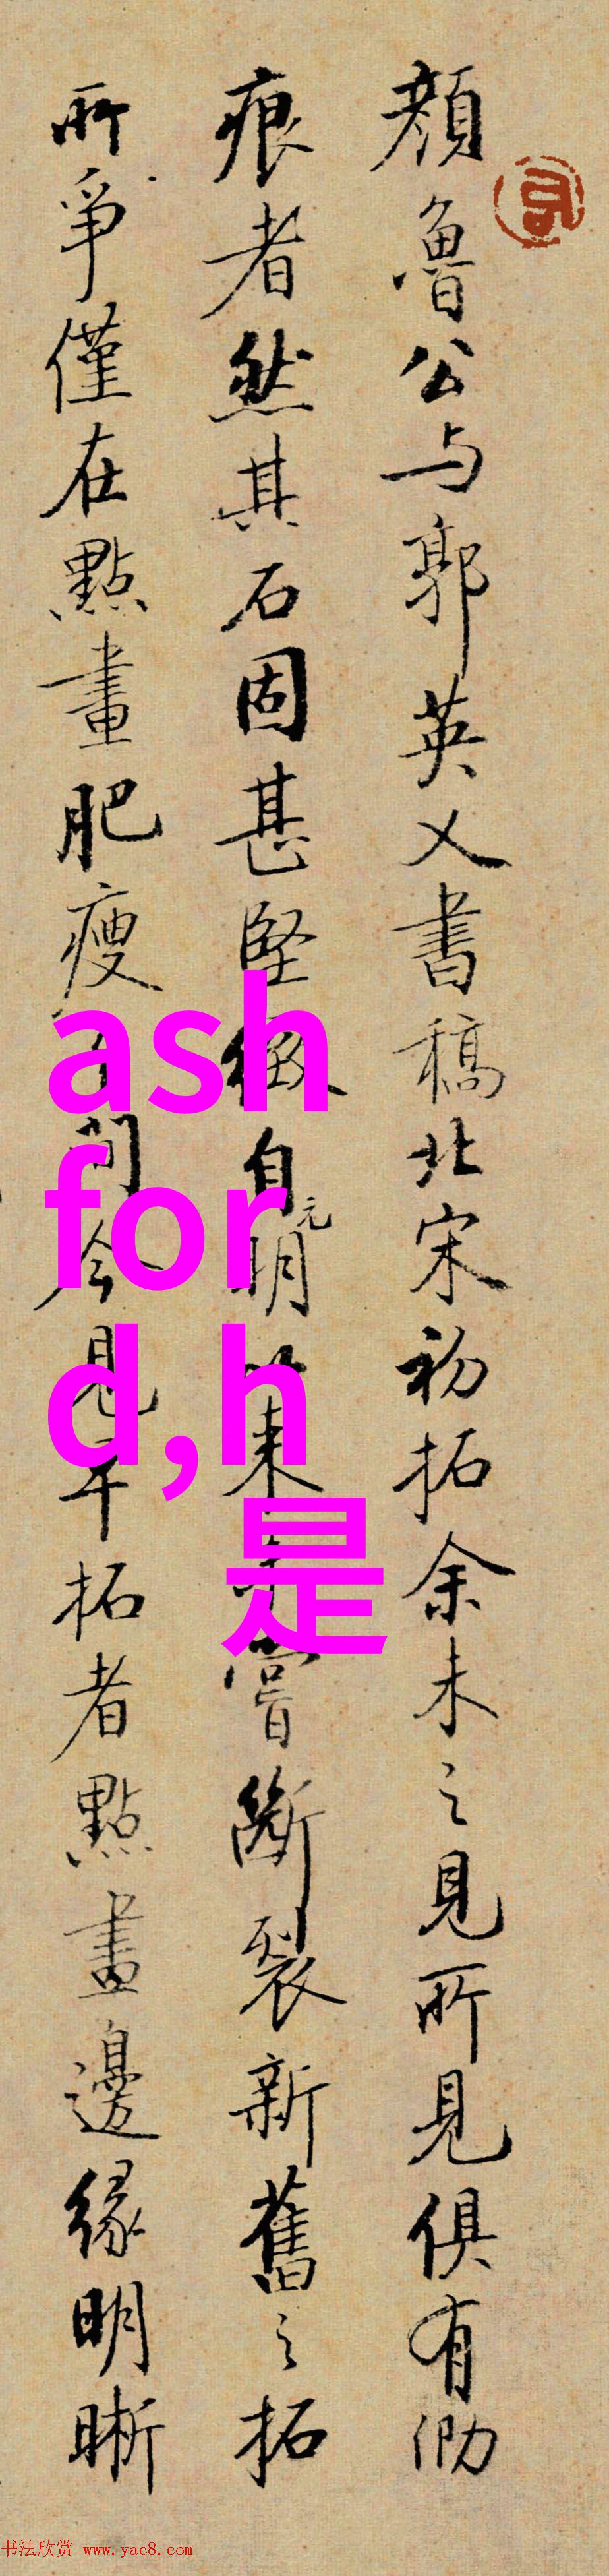 顏魯公与郭英乂書稿北宋初拓余未之見所見俱有泐
痕者然其石固甚堅緻自元明以來未嘗斷裂新舊之拓
所爭僅在點畫肥瘦之間今見舊拓者點畫邊緣明晰
ash
for
d,h
是
书法欣赏 www.yac8.com